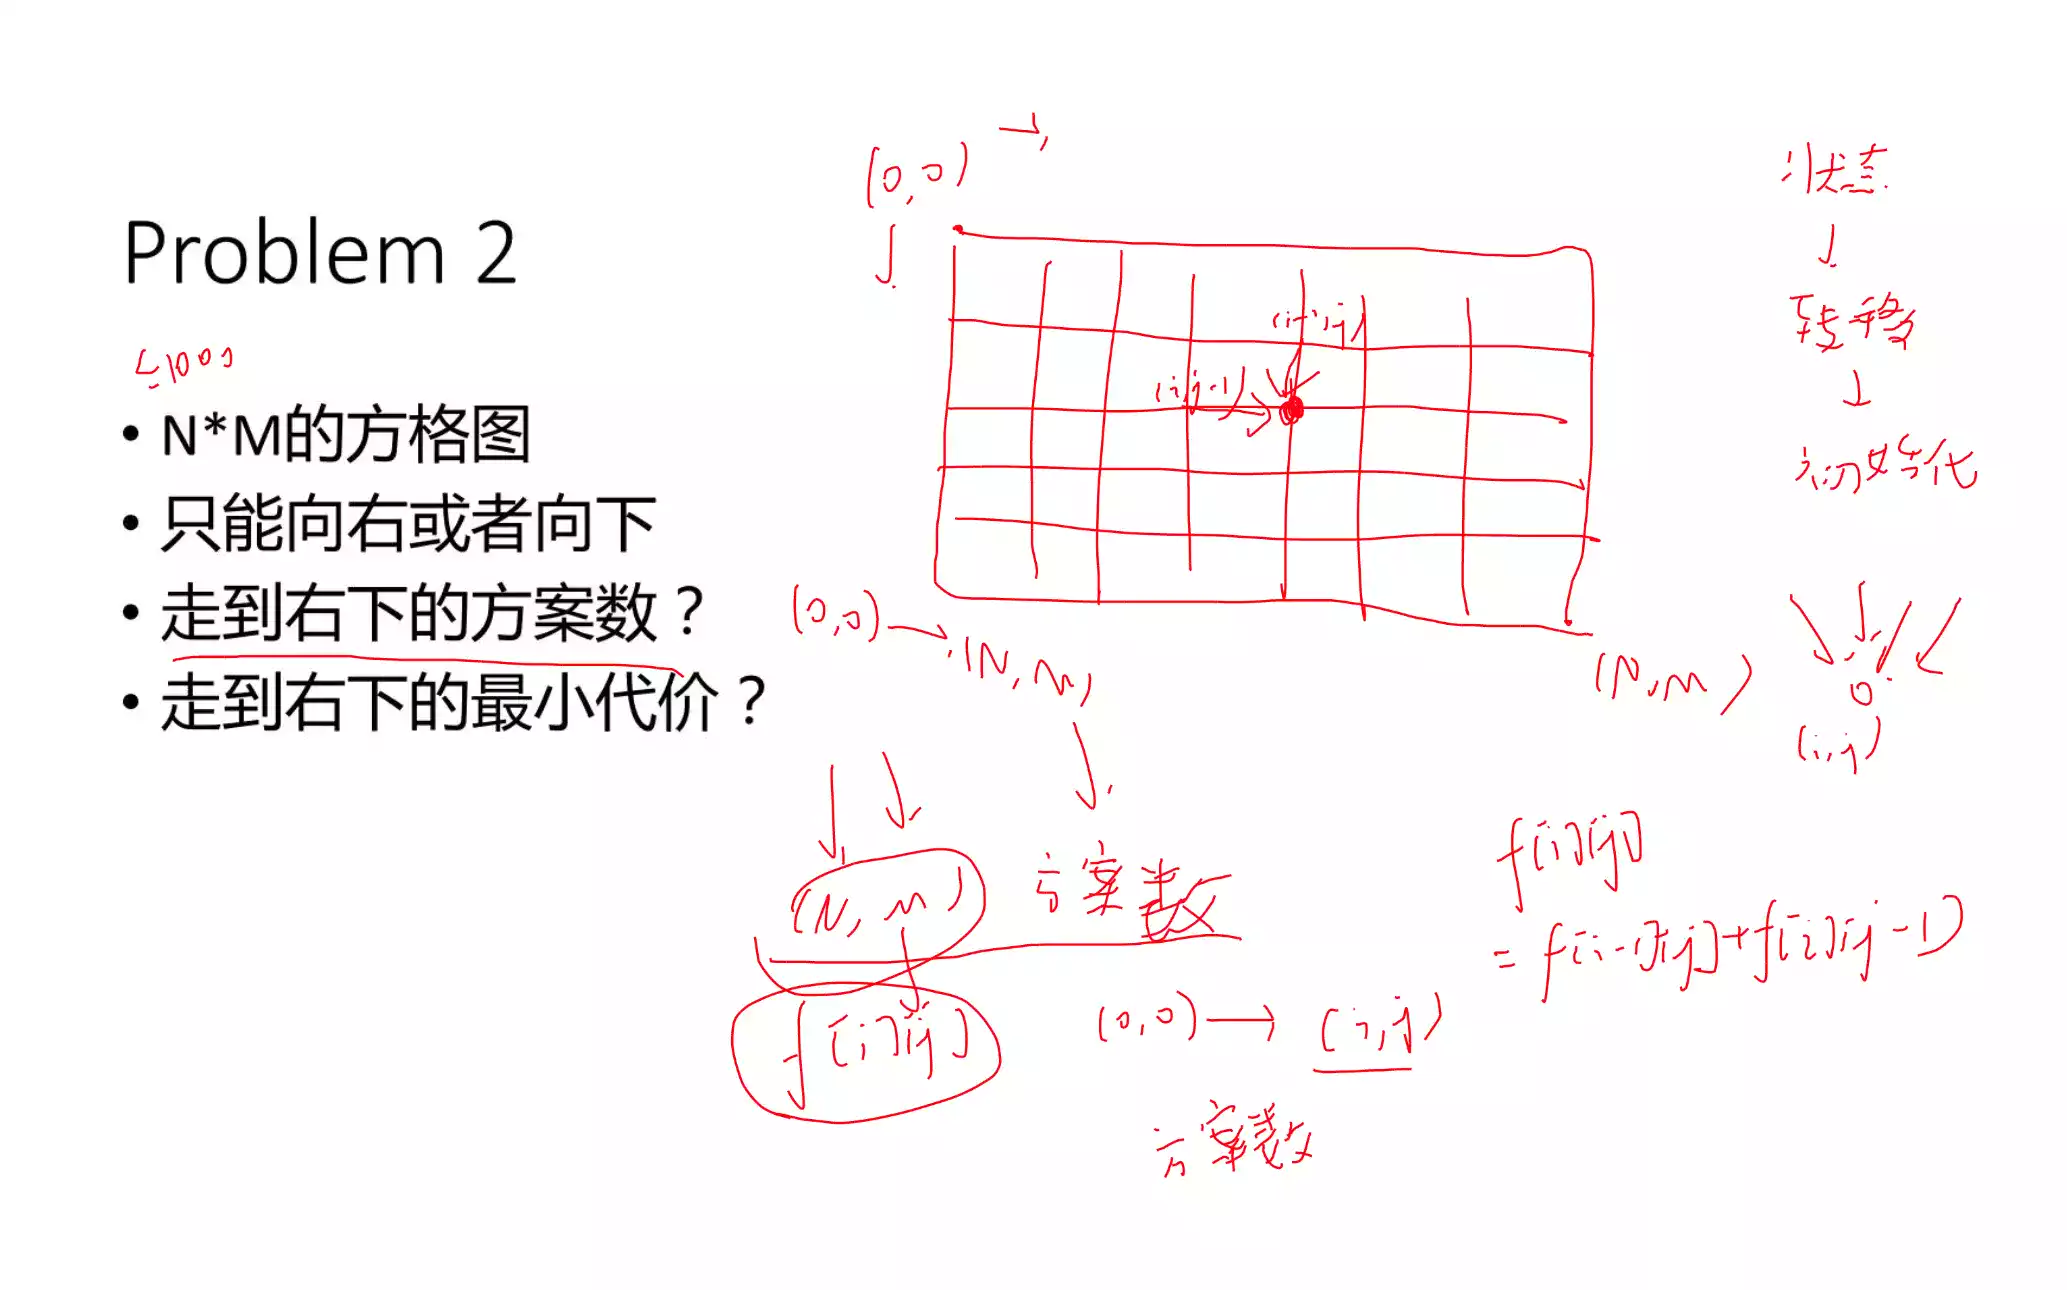 Problem 2
≤1000
• N*M的方格图
• 只能向右或者向下
• 走到右下的方案数？
• 走到右下的最小代价？
(0,0)
(i-1,j)
(i,j-1)
(0,0) → (N,M)
(N,M)
状态
↓
转移
↓
初始化
(i,j)
(N,M) 方案数
f[i][j]
(0,0) → (i,j)
方案数
f[i][j]
= f[i-1][j]+f[i][j-1]